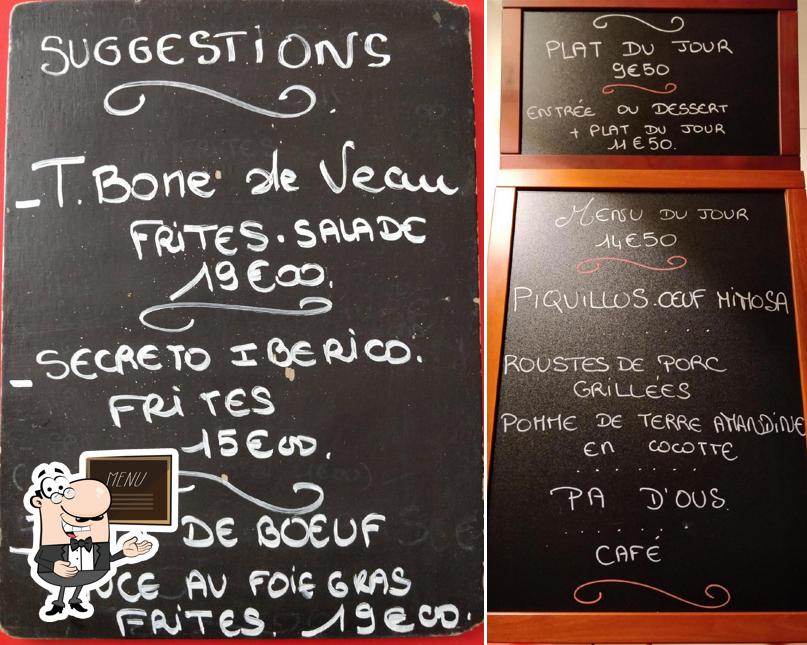 SUGGESTIONS
-T.Bone de Veau
FRITES.SALADE
19€00.
-SECRETO IBERICO.
FRITES
15€00.
DE BOEUF
AU FOIE GRAS
FRITES. 19€00.
MENU
PLAT DU JOUR
9€50
ENTRÉE OU DESSERT
+ PLAT DU JOUR
11€50.
MENU DU JOUR
14€50
PIQUILLOS.ŒUF MIMOSA
ROUSTES DE PORC
GRILLÉES
POMME DE TERRE AMANDINE
EN COCOTTE
PA D'OUS.
CAFÉ